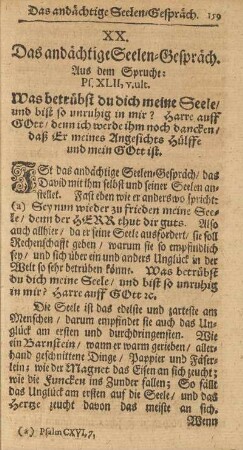 Das andächtige Seelen-Gespräch. 159
XX.
Das andächtige Seelen-Gespräch.
Aus dem Spruche:
Ps. XLII, v. ult.
Was betrübst du dich meine Seele/
und bist so unruhig in mir? Harre auff
GOtt/ denn ich werde ihm noch dancken/
daß Er meines Angesichts Hülffe
und mein GOtt ist.
IST das andächtige Seelen-Gespräch/ das
David mit ihm selbst und seiner Seelen an-
stellet. Fast eben wie er anderswo spricht:
(a) Sey nun wieder zu frieden meine See-
le/ denn der HERR thut dir guts. Also
auch allhier/ da er seine Seele ausfodert/ sie soll
Rechenschafft geben/ warum sie so empfindlich
sey/ und sich über ein und anders Unglück in der
Welt so sehr betrüben könnt. Was betrübst
du dich meine Seele/ und bist so unruhig
in mir? Harre auff GOtt ꝛc.
Die Seele ist das edelste und zarteste am
Menschen/ darum empfindet sie auch das Un-
glück am ersten und durchdringensten. Wie
ein Barnstein/ wann er warm gerieben/ aller-
hand geschnittene Dinge/ Pappier und Faser-
lein; wie der Magnet das Eisen an sich zeucht;
wie die Funcken ins Zunder fallen; So fällt
das Unglück am ersten auf die Seele/ und das
Hertze zeucht davon das meiste an sich.
Wenn
(a) Psalm CXVI, 7,